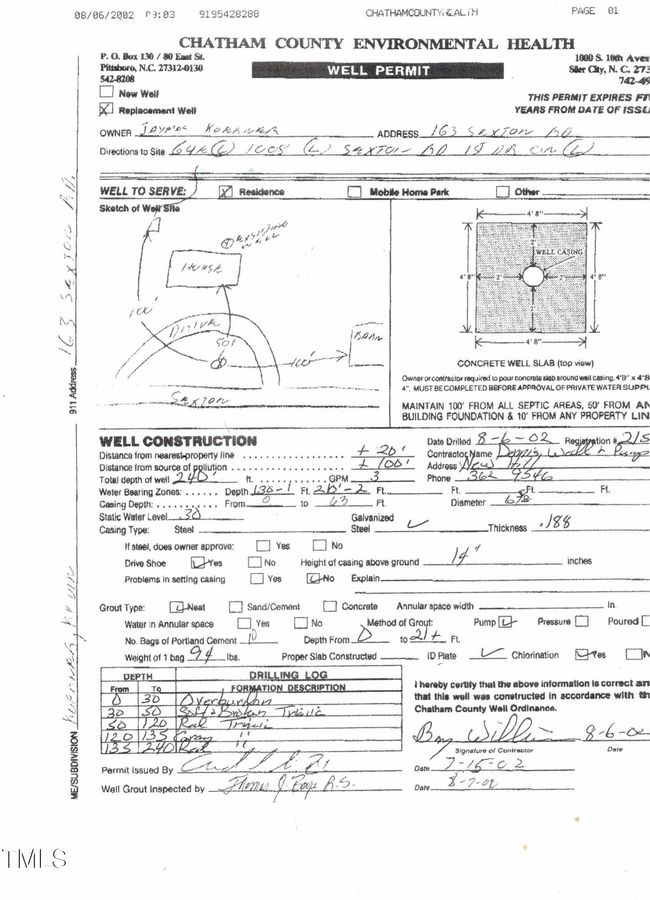 08/06/2002 9195428288 CHATHAMCOUNTYHEALTH PAGE 01
CHATHAM COUNTY ENVIRONMENTAL HEALTH
P. O. Box 130 / 80 East St.
Pittsboro, N.C. 27312-0130
542-8208
WELL PERMIT
1000 S. 10th Aven
Siler City, N. C. 273
742-49
New Well
Replacement Well
THIS PERMIT EXPIRES FI
YEARS FROM DATE OF ISSU
OWNER ADDRESS 163 SEXTON RD
Directions to Site 64E(L) 1008 (L) SEXTON RD 1ST DR ON (L)
WELL TO SERVE: Residence Mobile Home Park Other
Sketch of Well Site
EXISTING WELL
HOUSE
100'
DRIVE
50'
100'
BARN
SEXTON
911 Address 163 SEXTON RD.
4' 8"
2'
WELL CASING
4' 8" 2' 2' 4' 8"
2'
4' 8"
CONCRETE WELL SLAB (top view)
Owner or contractor required to pour concrete slab around well casing, 4'8" x 4'8
4". MUST BE COMPLETED BEFORE APPROVAL OF PRIVATE WATER SUPPL
MAINTAIN 100' FROM ALL SEPTIC AREAS, 50' FROM AN
BUILDING FOUNDATION & 10' FROM ANY PROPERTY LIN
WELL CONSTRUCTION
Date Drilled 8-6-02 Registration # 215
Distance from nearest property line + 20'
Contractor Name Well & Pump
Distance from source of pollution + 100'
Address New Hill
Total depth of well 240' ft. GPM 3
Phone 362 9546
Water Bearing Zones: Depth 130-1 Ft. Ft. Ft. Ft.
Casing Depth: From 0 to 63 Ft. Diameter
Static Water Level 30
Casing Type: Steel Galvanized Steel Thickness .188
If steel, does owner approve: Yes No
Drive Shoe Yes No Height of casing above ground 14" inches
Problems in setting casing Yes No Explain
Grout Type: Neat Sand/Cement Concrete Annular space width In.
Water in Annular space Yes No Method of Grout: Pump Pressure Poured
No. Bags of Portland Cement 10 Depth From 0 to 21+ Ft.
Weight of 1 bag 94 lbs. Proper Slab Constructed ID Plate Chlorination Yes N
DEPTH DRILLING LOG
From To FORMATION DESCRIPTION
0 30 Overburden
30 50 Soft & Broken Triasic
50 120 Red Triasic
120 135 Gray "
135 240 Red "
I hereby certify that the above information is correct an
that this well was constructed in accordance with th
Chatham County Well Ordinance.
8-6-02
Signature of Contractor Date
Permit Issued By
Date 7-15-02
Well Grout Inspected by Thomas J. Boyce R.S.
Date 8-7-02
ME/SUBDIVISION
TMLS